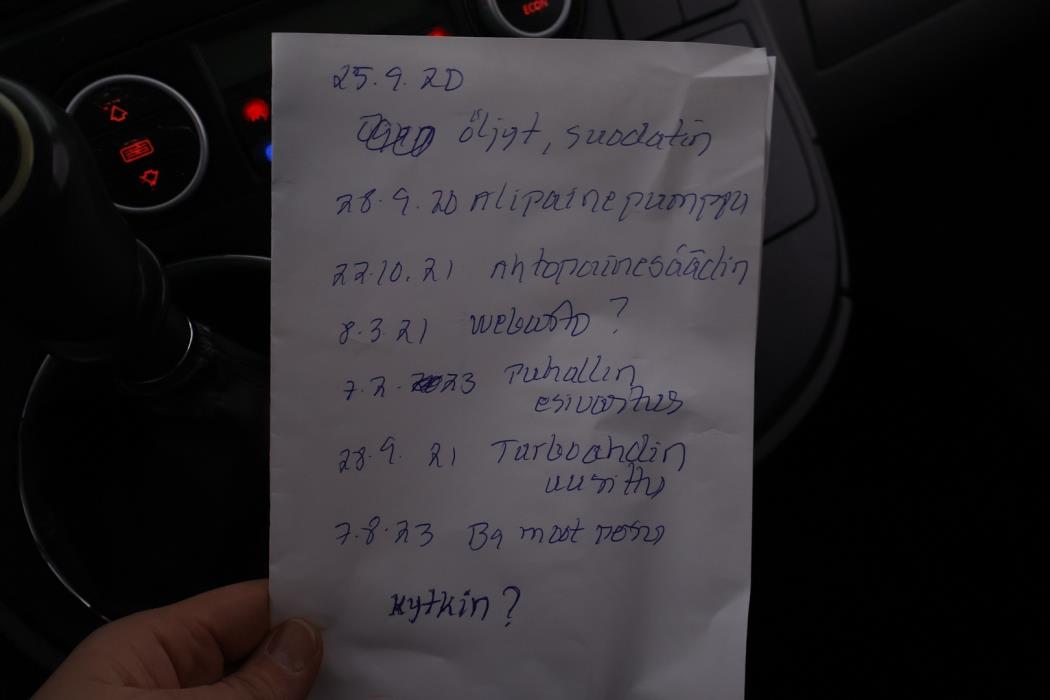 ECON
25.9.20
öljyt, suodatin
28.9.20 Alipainepumppu
22.10.21 Ahtopainesäädin
8.3.21 Webasto?
7.2.23 Puhallin
esivastus
28.9.21 Turboahdin
uusittu
7.8.23 moot pesu
Kytkin?